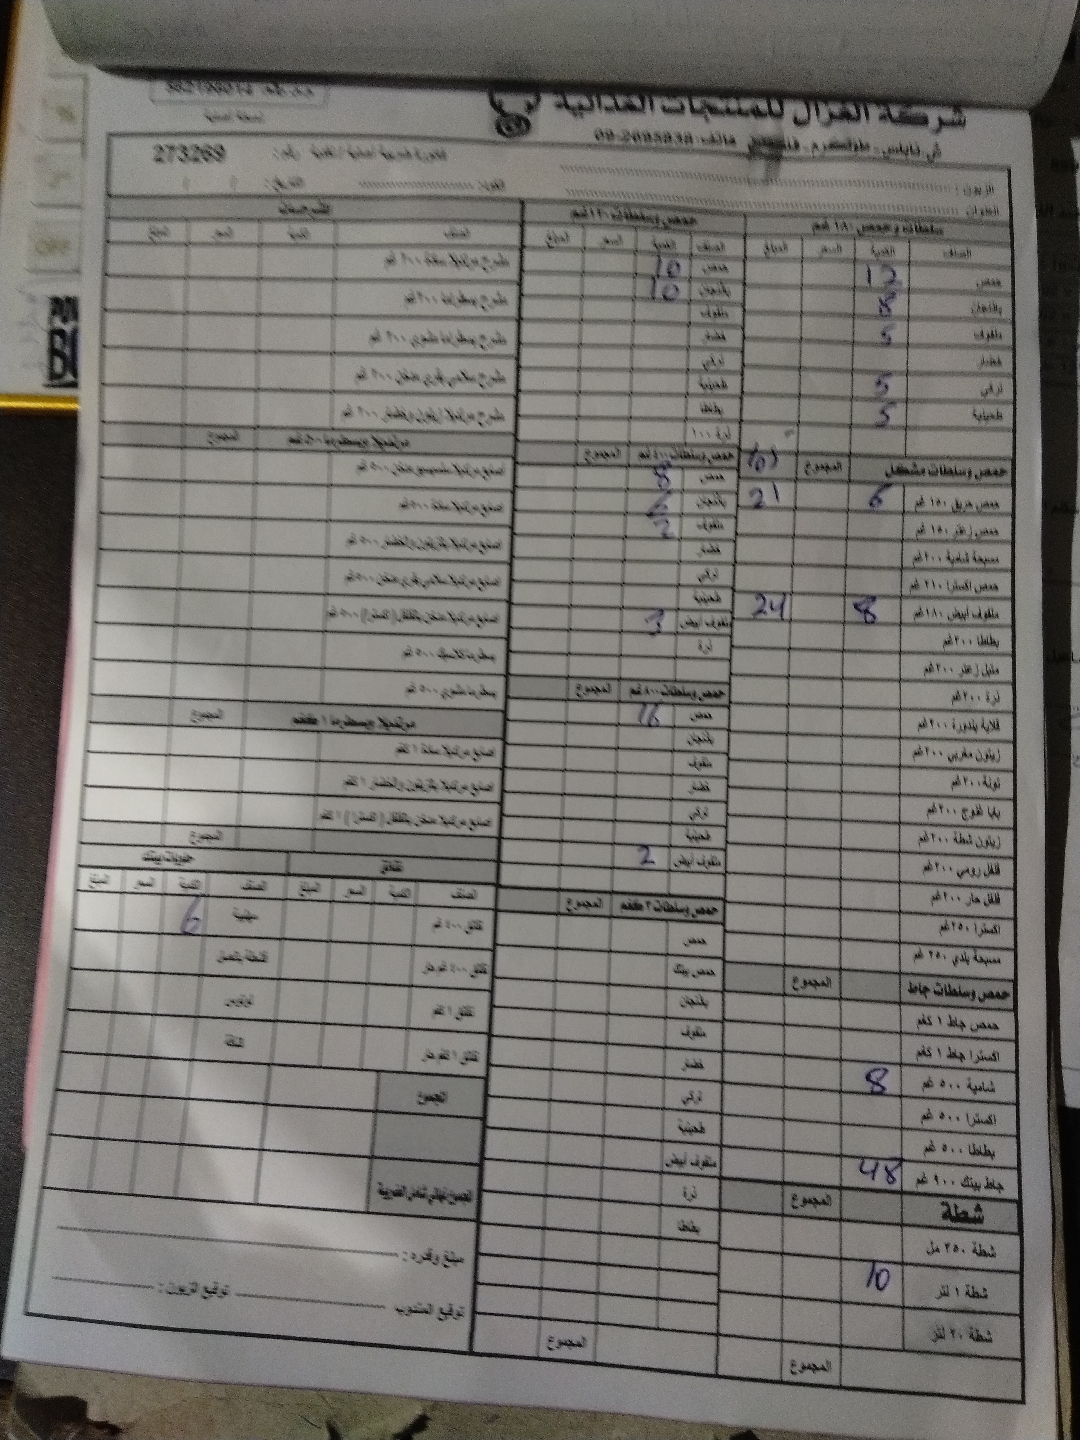 شركة الغزال للمنتجات الغذائية
ش. نابلس - طولكرم - فلسطين هاتف: 09-2695838
273269
الزبون:
العنوان
التاريخ: / /
سلطات وحمص ١٨٠ غم
الصنف الكمية السعر المبلغ
حمص 12
باذنجان 8
ملفوف 5
خضار
تركي 5
طحينية 5
حمص وسلطات مشكل المجموع
حمص حريق ١٥٠ غم 6 21
حمص زعتر ١٥٠ غم
مسبحة شامية ٢٠٠ غم
حمص اكسترا ٢١٠ غم
ملفوف أبيض ١٨٠ غم 8 24
بطاطا ٢٠٠ غم
متبل زعتر ٢٠٠ غم
ذرة ٢٠٠ غم
قلاية بندورة ٢٠٠ غم
زيتون مغربي ٢٠٠ غم
تونة ٢٠٠ غم
بابا غنوج ٢٠٠ غم
زيتون شطة ٢٠٠ غم
فلفل رومي ٢٠٠ غم
فلفل حار ٢٠٠ غم
اكسترا ٢٥٠ غم
مسبحة بلدي ٢٥٠ غم
حمص وسلطات جاط المجموع
حمص جاط ١ كغم
اكسترا جاط ١ كغم
شامية ٥٠٠ غم 8
اكسترا ٥٠٠ غم
بطاطا ٥٠٠ غم
جاط بيتك ٩٠٠ غم 48
شطة المجموع
شطة ٢٥٠ مل
شطة ١ لتر 10
شطة ٢٠ لتر
المجموع
حمص وسلطات ١٢٠ غم
الصنف الكمية السعر المبلغ
حمص 10
باذنجان 10
ملفوف
خضار
تركي
طحينية
بطاطا
ذرة ١٠٠
حمص وسلطات ٤٠٠ غم المجموع
حمص 8
باذنجان
ملفوف 2
خضار
تركي
طحينية
ملفوف أبيض 3
ذرة
حمص وسلطات ٨٠٠ غم المجموع
حمص 16
باذنجان
ملفوف
خضار
تركي
طحينية
ملفوف أبيض 2
حمص وسلطات ٢ كغم المجموع
حمص
حمص بيتك
باذنجان
ملفوف
خضار
تركي
طحينية
ملفوف أبيض
ذرة
بطاطا
المجموع
الصنف الكمية السعر المبلغ
مشرح مرتديلا سادة ٢٠٠ غم
مشرح بسطرما ٢٠٠ غم
مشرح بسطرما مشوي ٢٠٠ غم
مشرح سلامي بقري مدخن ٢٠٠ غم
مشرح مرتديلا زيتون وخضار ٢٠٠ غم
مرتديلا وبسطرما ٥٠٠ غم المجموع
اصابع مرتديلا سادة ٥٠٠ غم
اصابع مرتديلا بالزيتون والخضار ٥٠٠ غم
اصابع مرتديلا سلامي بقري مدخن ٥٠٠ غم
اصابع مرتديلا مدخن بالفلفل (اكسترا) ٥٠٠ غم
بسطرما كلاسيك ٥٠٠ غم
بسطرما مشوي ٥٠٠ غم
مرتديلا وبسطرما ١ كغم المجموع
اصابع مرتديلا سادة ١ كغم
اصابع مرتديلا بالزيتون والخضار ١ كغم
اصابع مرتديلا مدخن بالفلفل (اكسترا) ١ كغم
المجموع
نقانق
الصنف الكمية السعر المبلغ
نقانق ٤٠٠ غم
نقانق ٤٠٠ غم حار
نقانق ١ كغم
نقانق ١ كغم حار
حلويات بيتك
الصنف الكمية السعر المبلغ
مهلبية 6
المجموع
المجموع النهائي شامل الضريبة
مبلغ وقدره:
توقيع المندوب توقيع الزبون: